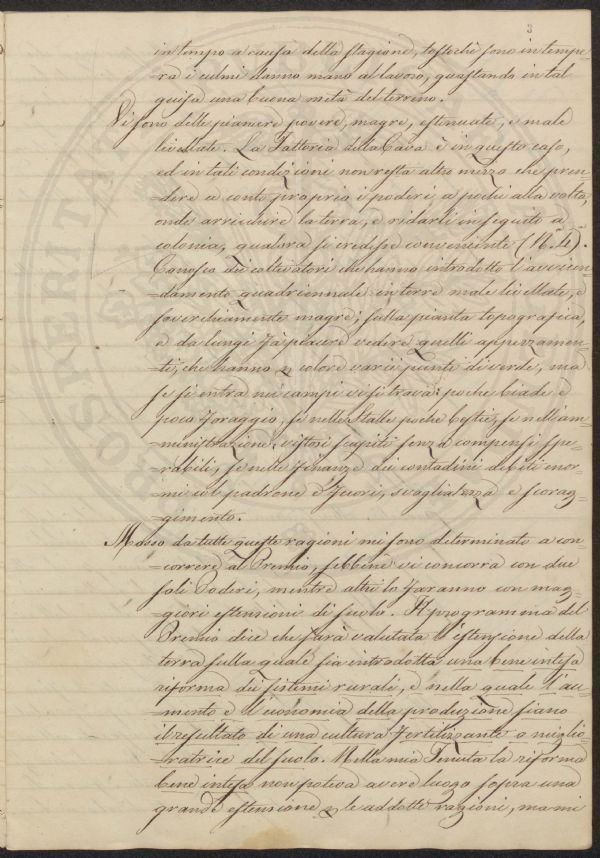 3
in tempo a causa della stagione, tostochè sono in tempe-
ra i culmi danno mano al lavoro, guastando in tal
guisa una buona metà del terreno.
Vi sono delle pianure povere, magre, estenuate, e male
livellate. La Fattoria della Cava è in questo caso,
ed in tali condizioni non resta altro mezzo che pren-
dere a conto proprio i poderi, a pochi alla volta,
onde arricchire la terra, e ridarli in seguito a
colonia, qualora si credesse conveniente (N. 4).
Conosco dei coltivatori che hanno introdotto l'avvicen-
=damento quadriennale in terre male livellate, e
soverchiamente magre; sulla pianta topografica,
e da lungi fà piacere vedere quelli appezzamen-
=ti, che hanno p colore varii punti di verde, ma
se si entra nei campi vi si trova: poche biade e
poco foraggio, se nelle stalle poche bestie, se nell'am-
=ministrazione, vistosi scapiti senza compensi spe-
=rabili, se nelle finanze dei contadini debiti enor-
=mi col padrone e fuori, svogliatezza e scorag-
=gimento.
Mosso da tutte queste ragioni mi sono determinato a con-
=correre al Premio, sebbene vi concorra con due
soli Poderi, mentre altri lo faranno con mag-
=giori estensioni di suolo. Il programma del
Premio dice che sarà valutata l'estensione della
terra sulla quale sia introdotta una bene intesa
riforma dei sistemi rurali, e nella quale l'au-
=mento e l'economia della produzione siano
il resultato di una cultura fertilizzante o miglio-
=ratrice del suolo. Nella mia Tenuta la riforma
bene intesa non poteva avere luogo sopra una
grande estensione p le addotte ragioni, ma mi